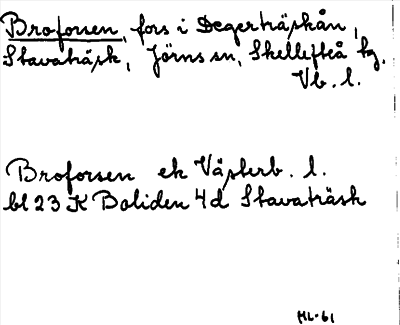 Broforsen, fors i Degerträskån,
Stavaträsk, Jörns sn, Skellefteå tg,
Vb. l.
Broforsen ek Västerb. l.
bl 23 K Boliden 4d Stavaträsk
HL-61